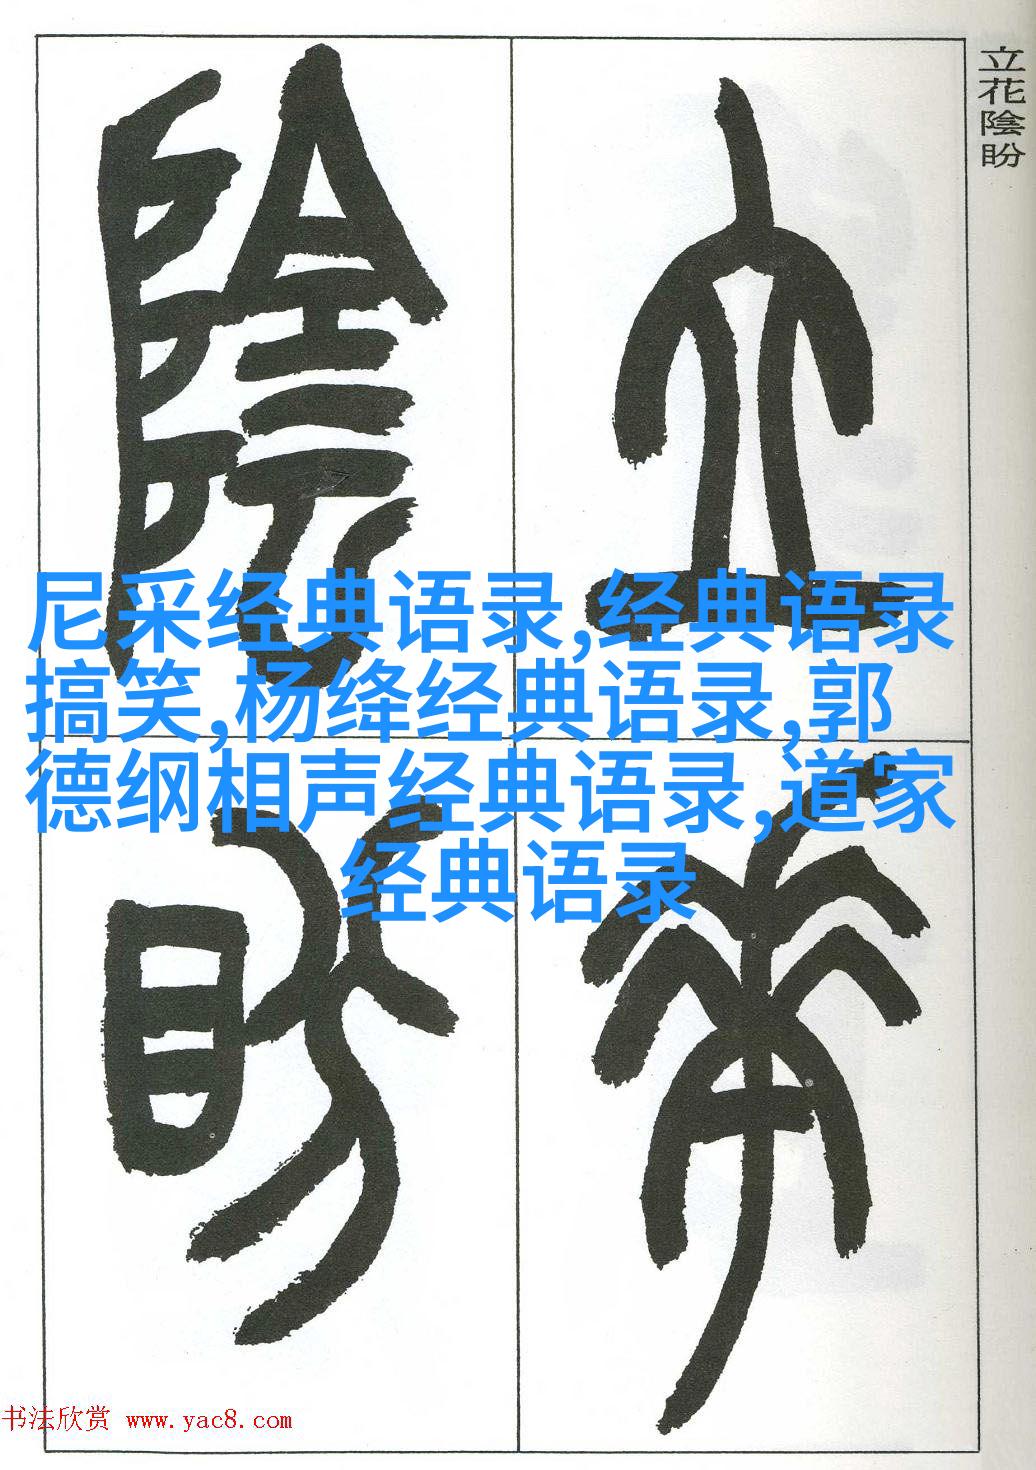 立花陰盼
立
花
陰
盼
尼采经典语录,经典语录
搞笑,杨绛经典语录,郭
德纲相声经典语录,道家
经典语录
书法欣赏 www.yac8.com